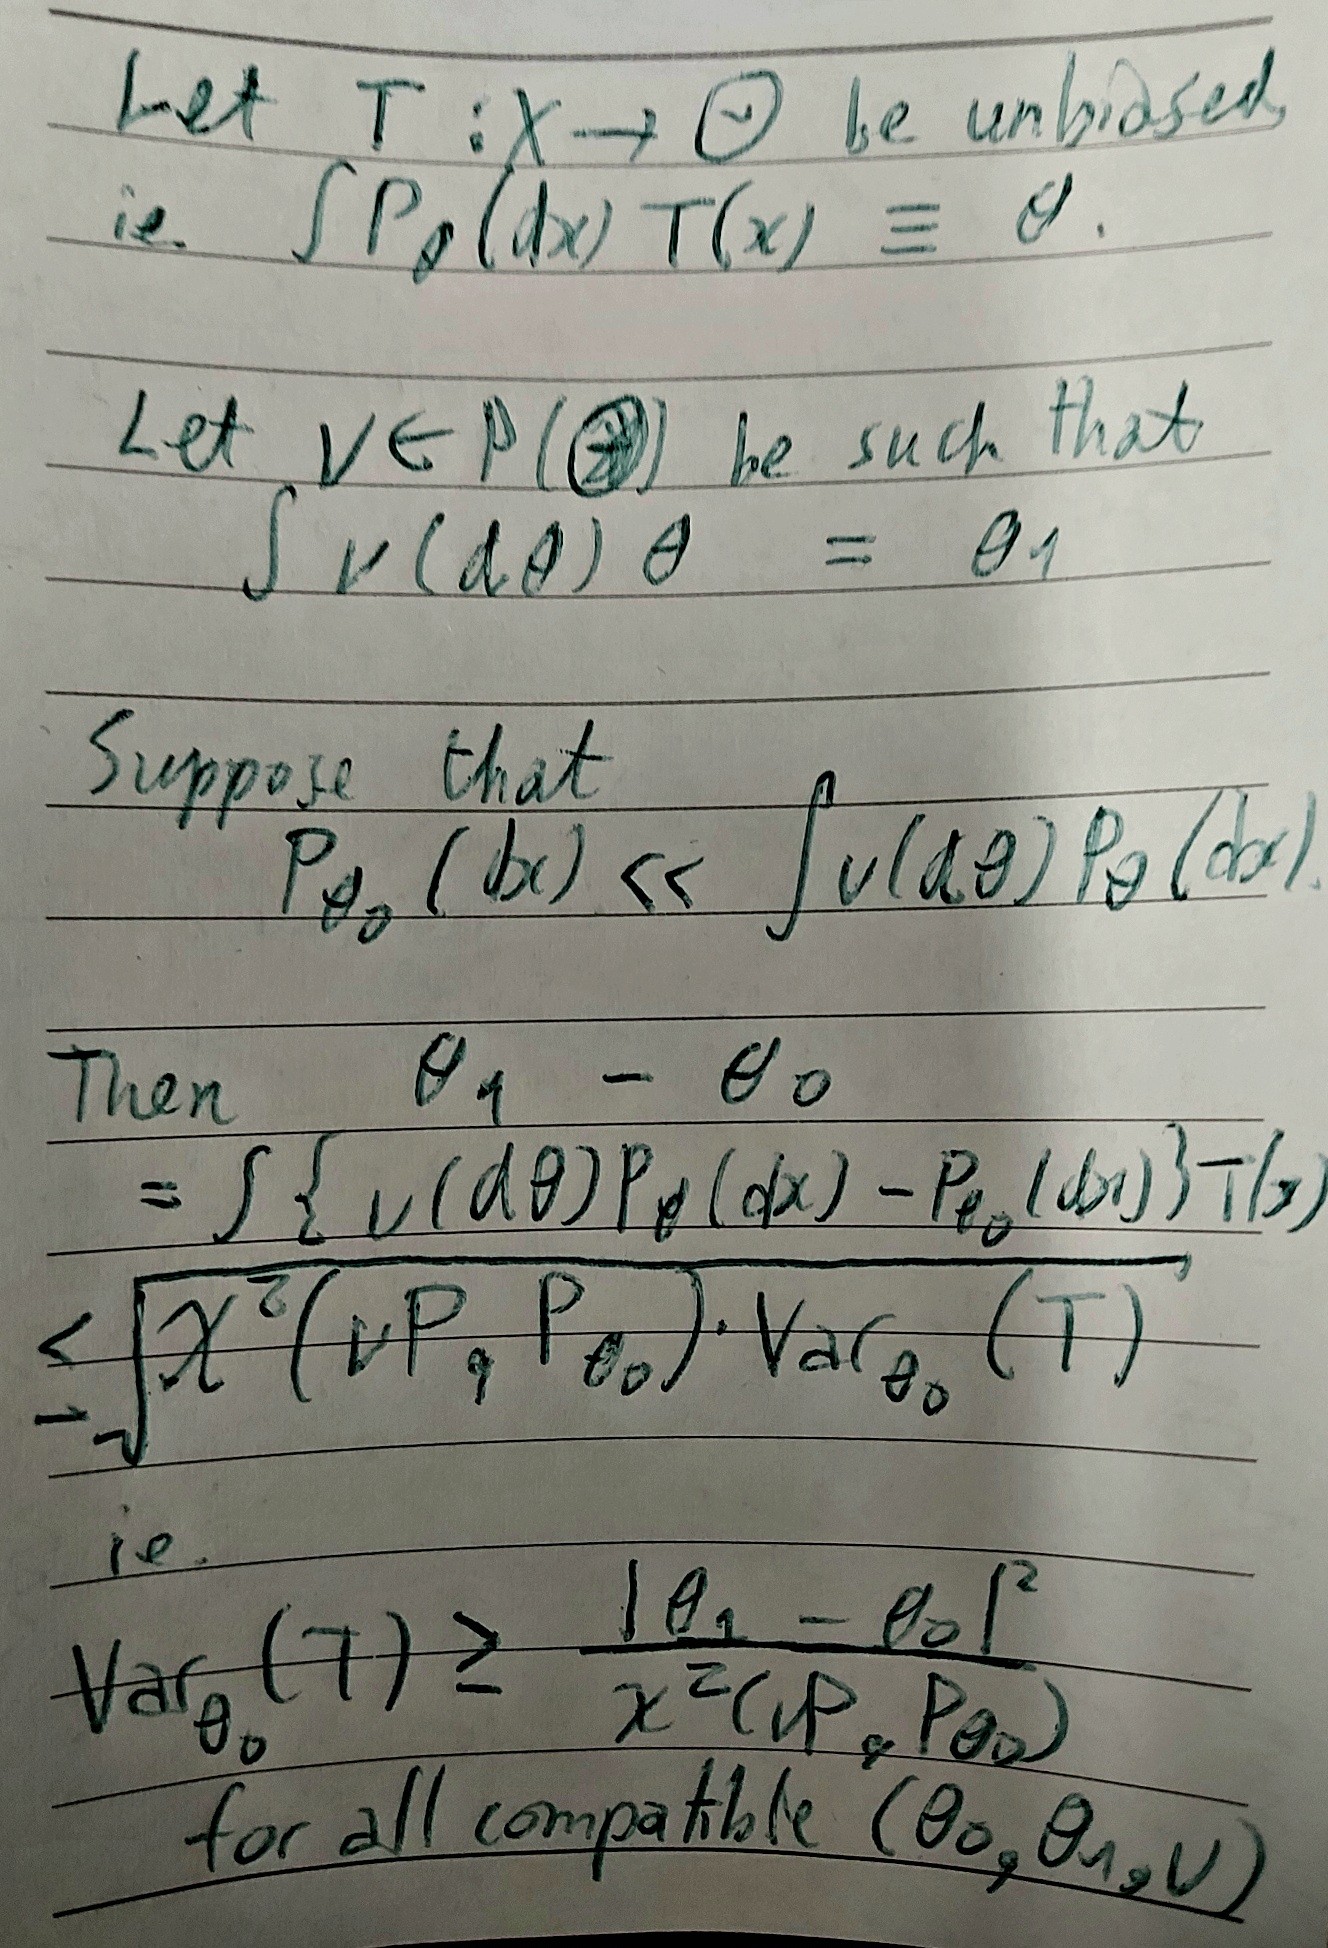 Let T : X → Θ be unbiased,
ie. ∫ P_θ (dx) T(x) ≡ θ.
Let ν ∈ P(Θ) be such that
∫ ν(dθ) θ = θ_1
Suppose that
P_θ_0 (dx) << ∫ ν(dθ) P_θ (dx).
Then θ_1 - θ_0
= ∫ { ν(dθ) P_θ (dx) - P_θ_0 (dx) } T(x)
≤ √(χ²(νP, P_θ_0) · Var_θ_0 (T))
ie.
Var_θ_0 (T) ≥ |θ_1 - θ_0|² / χ²(νP, P_θ_0)
for all compatible (θ_0, θ_1, ν)